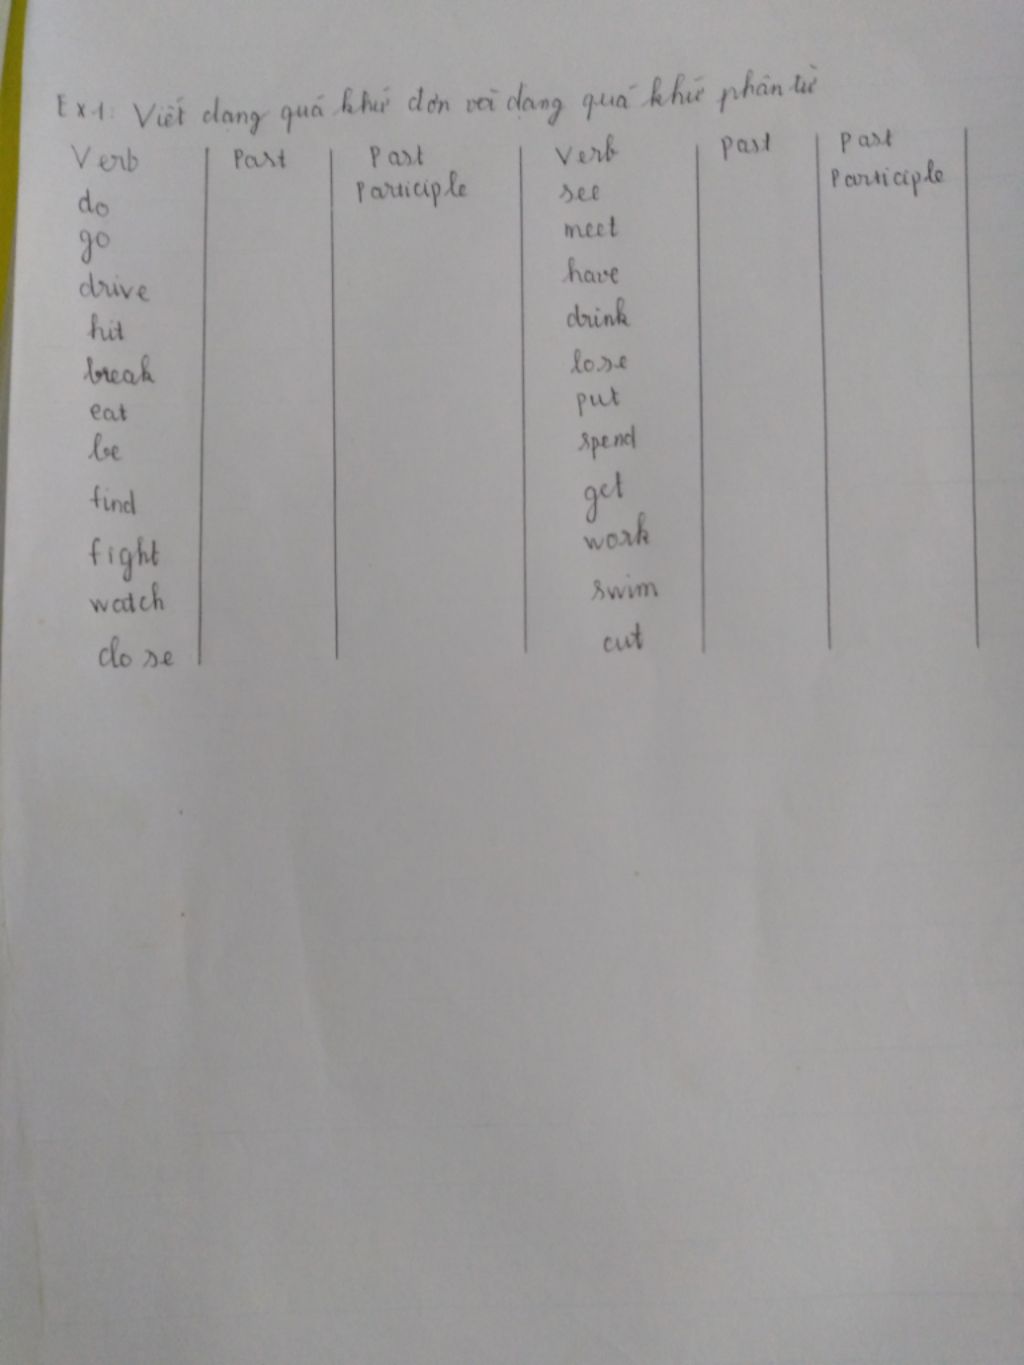 Ex1: Viết dạng quá khứ đơn với dạng quá khứ phân từ
Verb Past Past Participle Verb Past Past Participle
do see
go meet
drive have
hit drink
break lose
eat put
be spend
find get
fight work
watch swim
close cut